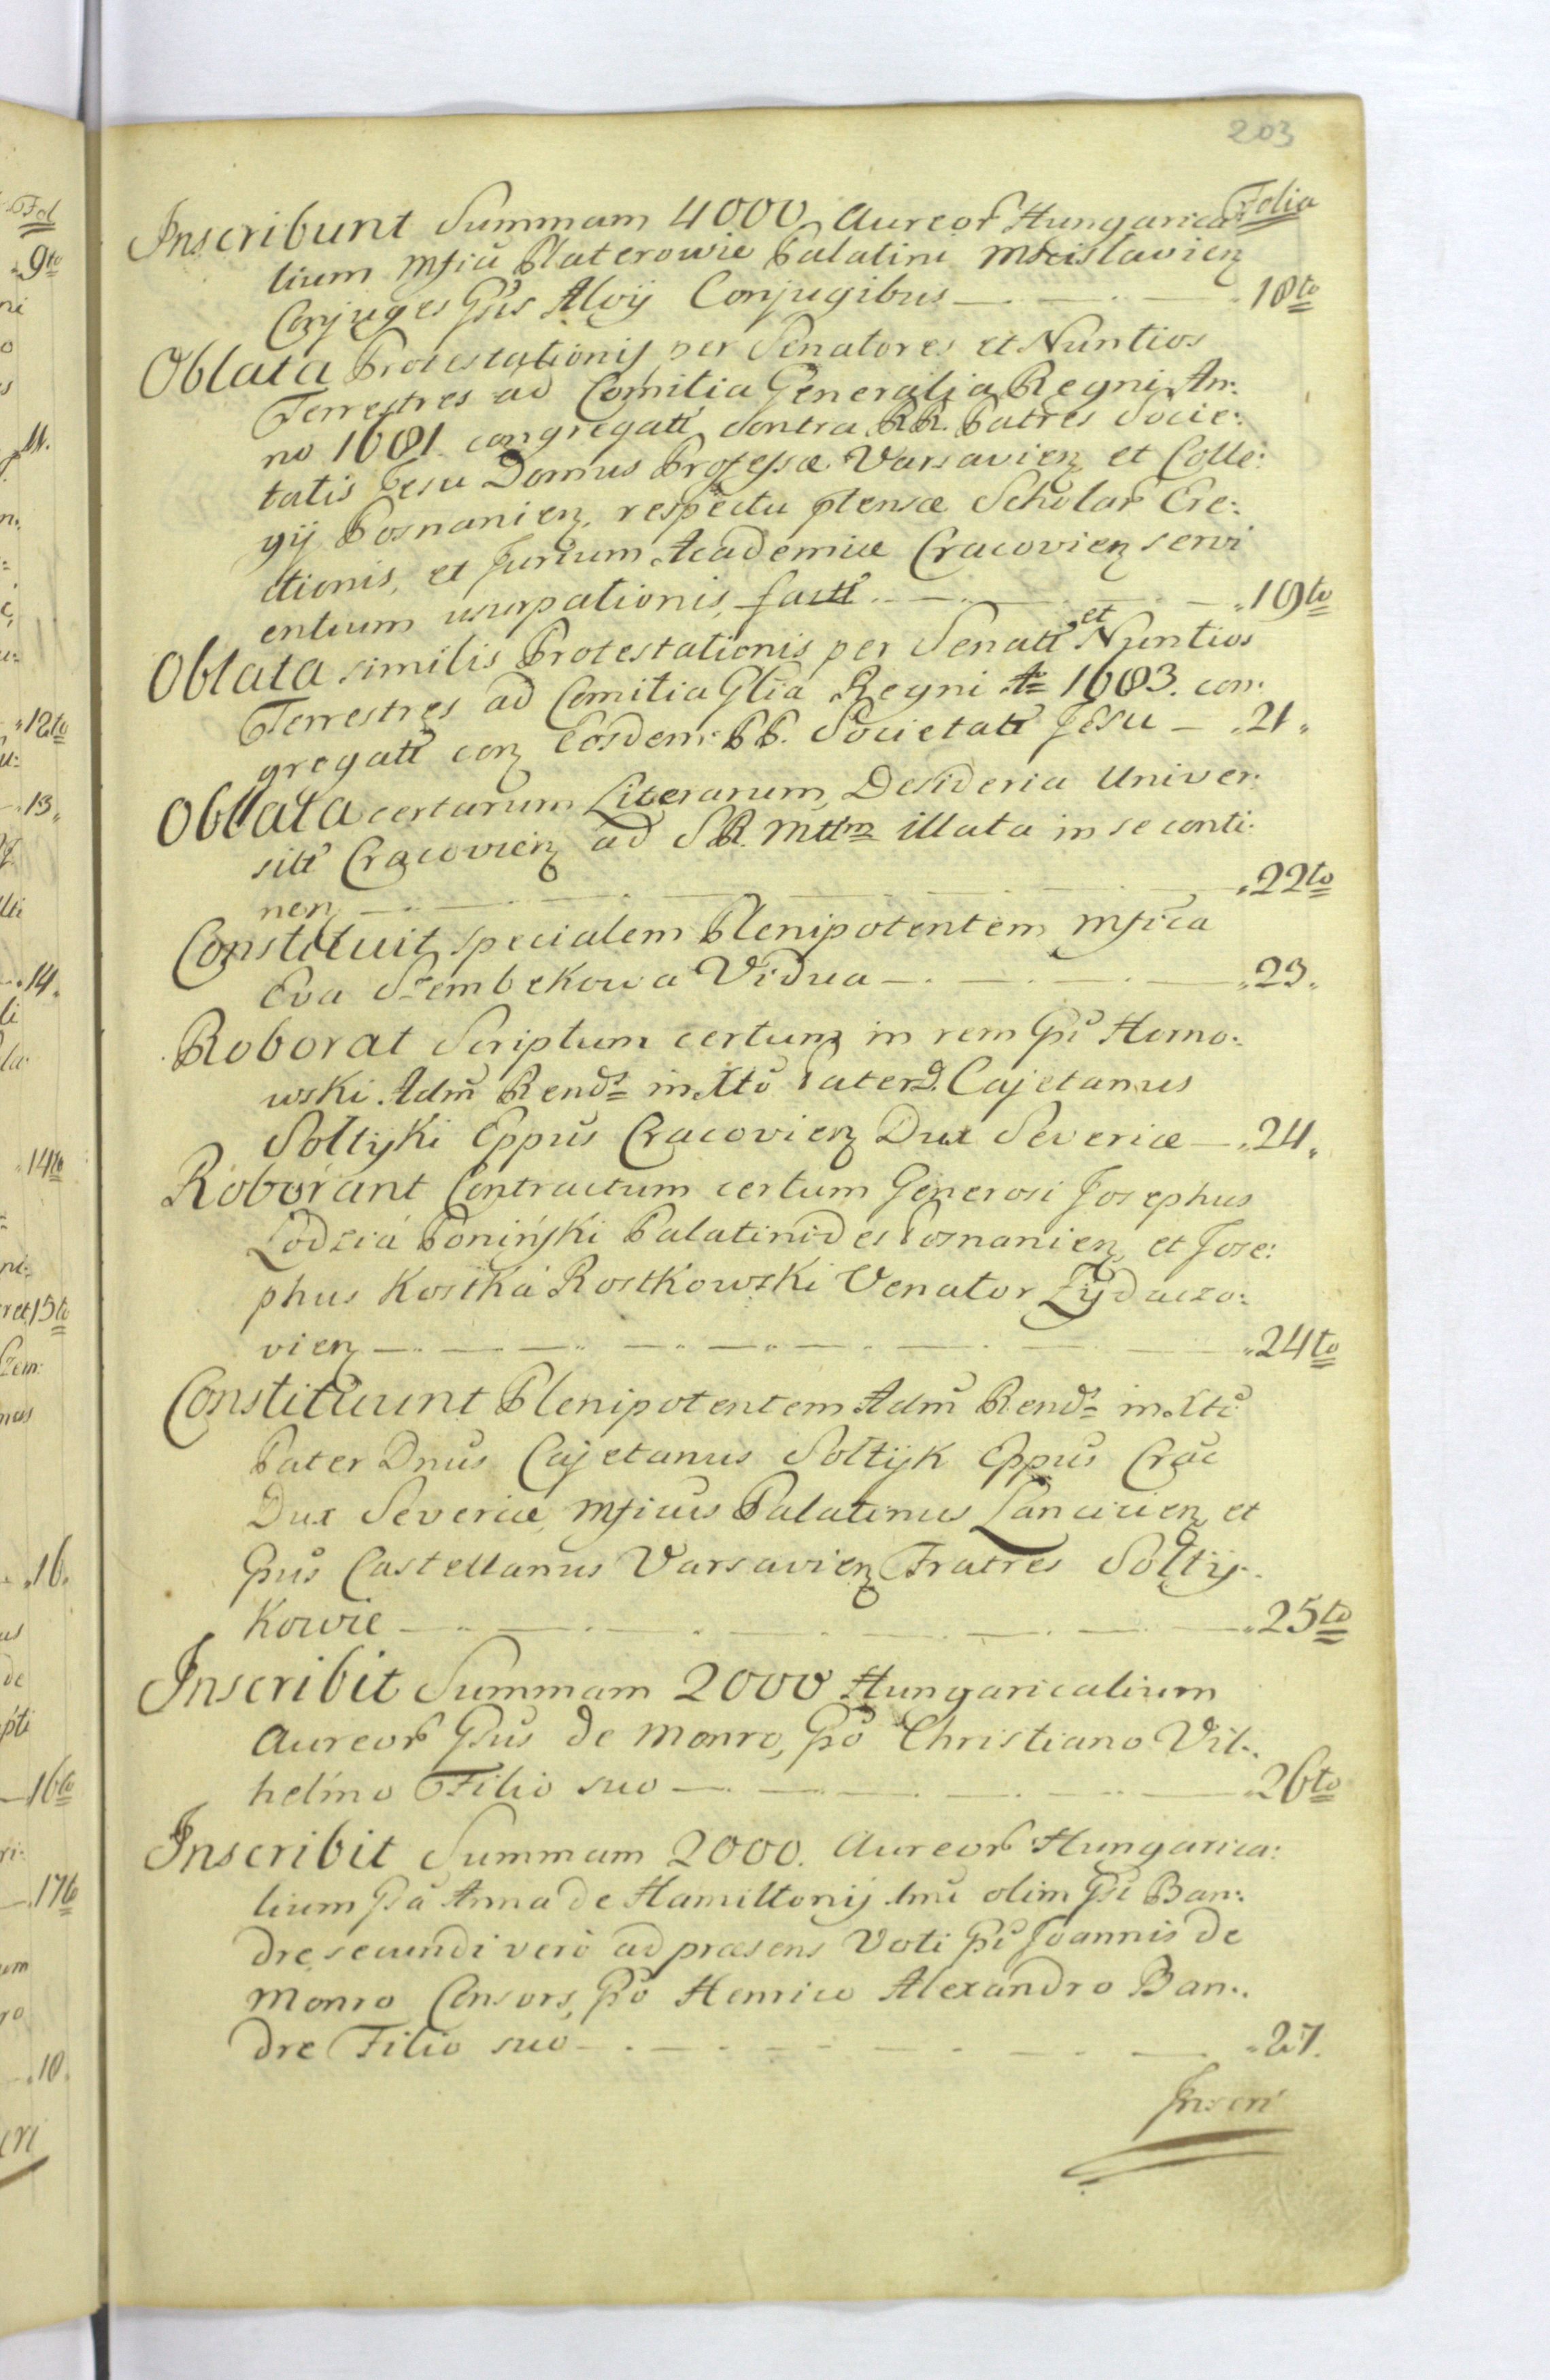 203
Folia
Inscribunt Summam 4000 Aureor Hungarica:
lium Mficú Platerowie Palatini Mscislavien
Conjuges Gsis Aloij Conjugibus — 18to
Oblata Protestationis per Senatores et Nuntios
Terrestres ad Comitia Generalia Regni An:
no 1681 congregatt contra RR. Patres Socie:
tatis Jesu Domus Professæ Varsavien et Colle:
gij Posnanien, respectu ptensæ Scholar Ere:
ctionis, et Jurium Academiæ Cracovien servi
entium usurpationis, factt — 19to
Oblata similis Protestationis per Senatt et Nuntios
Terrestres ad Comitia Glia Regni Ao 1683. con:
gregatt con Eosdem PP. Societatt Jesu — 21.
Oblata certarum Literarum, Desideria Univer:
sitt Cracovien ad S.R. Mttm illata in se conti:
nen — 22to
Constituit specialem Plenipotentem Mfica
Eva Szembekowa Vidua — 23.
Roborat Scriptum certum in rem Gsi Homo:
wski Adm Rends in Xto Pater D. Cajetanus
Sołtyski Eppus Cracovien Dux Severiæ — 24.
Roborant Contractum certum Generosi Josephus
Łodzia Poniński Palatinides Posnanien et Jose:
phus Kostka Rostkowski Venator Zydaczo:
vien — 24to
Constituunt Plenipotentem Adm Rends in Xto
Pater Dnus Cajetanus Sołtyk Eppus Crac
Dux Severiæ, Mficus Palatinus Lancicien et
Gsus Castellanus Varsavien Fratres Sołty:
kowie — 25to
Inscribit Summam 2000 Hungaricalium
Aureor Gsus de Monro, Gso Christiano Vil:
helmo Filio suo — 26to
Inscribit Summam 2000. Aureor Hungarica:
lium Gsa Anna de Hamiltonij 1mi olim Gsi Ban:
dre secundi vero ad præsens Voti Gsi Joannis de
Monro Consors, Gso Henrico Alexandro Ban:
dre Filio suo — 27.
Inscri